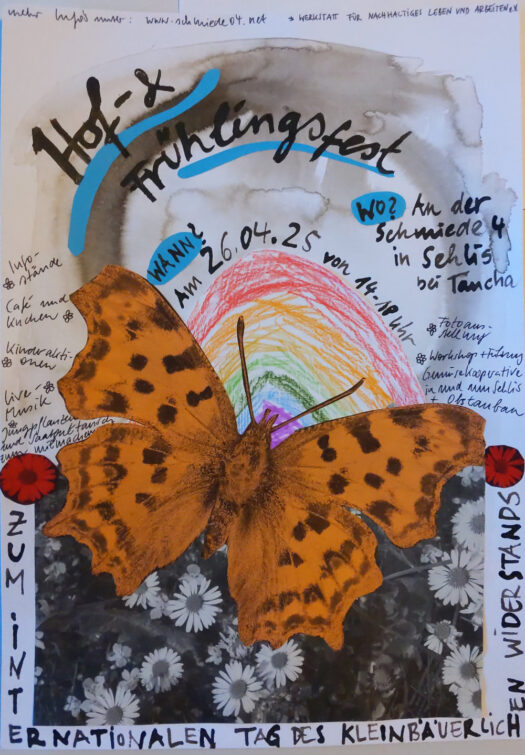 mehr Infos unter: www.schmiede04.net * WERKSTATT FÜR NACHHALTIGES LEBEN UND ARBEITEN e.V.
Hof- &
Frühlingsfest
WANN?
Am 26.04.25 von 14-18 Uhr
WO? An der
Schmiede 4
in Sehlis
bei Taucha
Info-
stände
Café und
Kuchen
Kinderakti-
onen
Live-
Musik
Jungpflanzen
und Saatguttausch
zum mitmachen
Fotoaus-
stellung
Workshop + Führung
Gemüsekooperative
in und um Sehlis
+ Obstanbau
ZUM INTERNATIONALEN TAG DES KLEINBÄUERLICHEN WIDERSTANDS